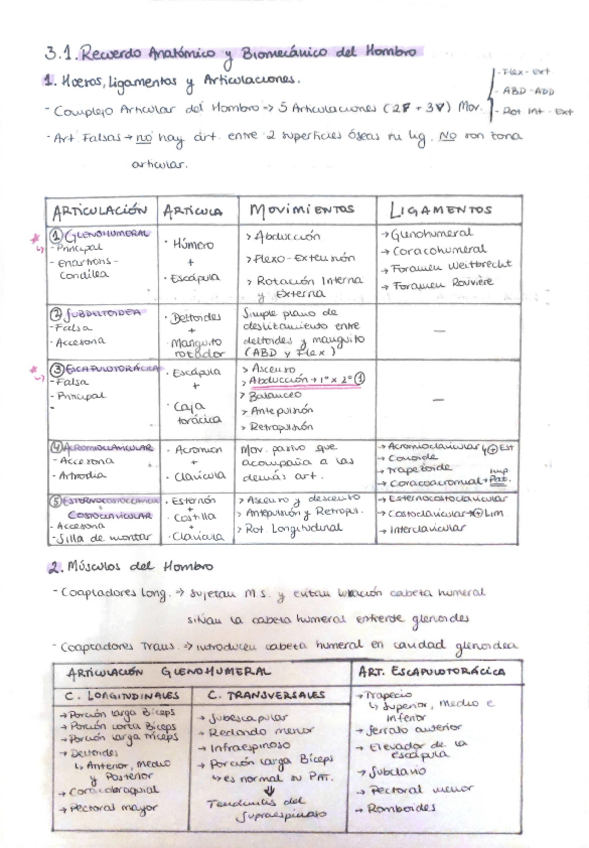 3.1. Recuerdo Anatómico y Biomecánico del Hombro
1. Huesos, ligamentos y Articulaciones.
- Flex - ext
- ABD - ADD
- Rot Int - Ext
- Complejo Articular del Hombro => 5 Articulaciones (2F + 3V) Mov.
- Art. Falsas → no hay art. entre 2 superficies óseas su lig. NO son zona
articular.
ARTICULACIÓN
ARTICULA
MOVIMIENTOS
LIGAMENTOS
① GLENOHUMERAL
- Principal
- Enartrosis-
Condílea
· Húmero
+
· Escápula
> Abducción
> Flexo - Extensión
> Rotación Interna
y Externa
→ Glenohumeral
→ Coracohumeral
→ Foramen Weitbrecht
→ Foramen Rouvière
② SUBDELTOIDEA
- Falsa
- Accesoria
· Deltoides
+
· Manguito
rotador
Simple plano de
deslizamiento entre
deltoides y manguito
(ABD y Flex)
—
③ ESCAPULOTORÁCICA
- Falsa
- Principal
-
· Escápula
+
· Caja
torácica
> Ascenso
> Abducción → 1º x 2º ①
> Balanceo
> Antepulsión
> Retropulsión
—
④ ACROMIOCLAVICULAR
- Accesoria
- Artrodia
· Acromion
+
· Clavícula
Mov. pasivo que
acompaña a las
demás art.
→ Acromioclavicular ↳ ⊕ Est
→ Conoide
→ Trapezoide
→ Coracoacromial → Imp Pat.
⑤ ESTERNOCOSTOCLAVICULAR
COSTOCLAVICULAR
- Accesoria
- Silla de montar
· Esternón
+
· Costilla
+
· Clavícula
> Ascenso y descenso
> Antepulsión y Retropul.
> Rot Longitudinal
→ Esternocostoclavicular
→ Costoclavicular → ⊕ Lim
→ Interclavicular
2. Músculos del Hombro
- Coaptadores Long. → sujetan M.S. y evitan luxación cabeza humeral
sitúan la cabeza humeral enfrente glenoides
- Coaptadores Trans. → introducen cabeza humeral en cavidad glenoidea
ARTICULACIÓN GLENOHUMERAL
ART. ESCAPULOTORÁCICA
C. LONGITUDINALES
C. TRANSVERSALES
→ Porción larga Bíceps
→ Porción corta Bíceps
→ Porción larga tríceps
→ Deltoides
↳ Anterior, medio
y Posterior
→ Coracobraquial
→ Pectoral mayor
→ Subescapular
→ Redondo menor
→ Infraespinoso
→ Porción larga Bíceps
↳ es normal su PAT.
⇓
Tendinitis del
supraespinoso
→ Trapecio
↳ Superior, Medio e
Inferior
→ Serrato anterior
→ Elevador de la
escápula
→ Subclavio
→ Pectoral menor
→ Romboides